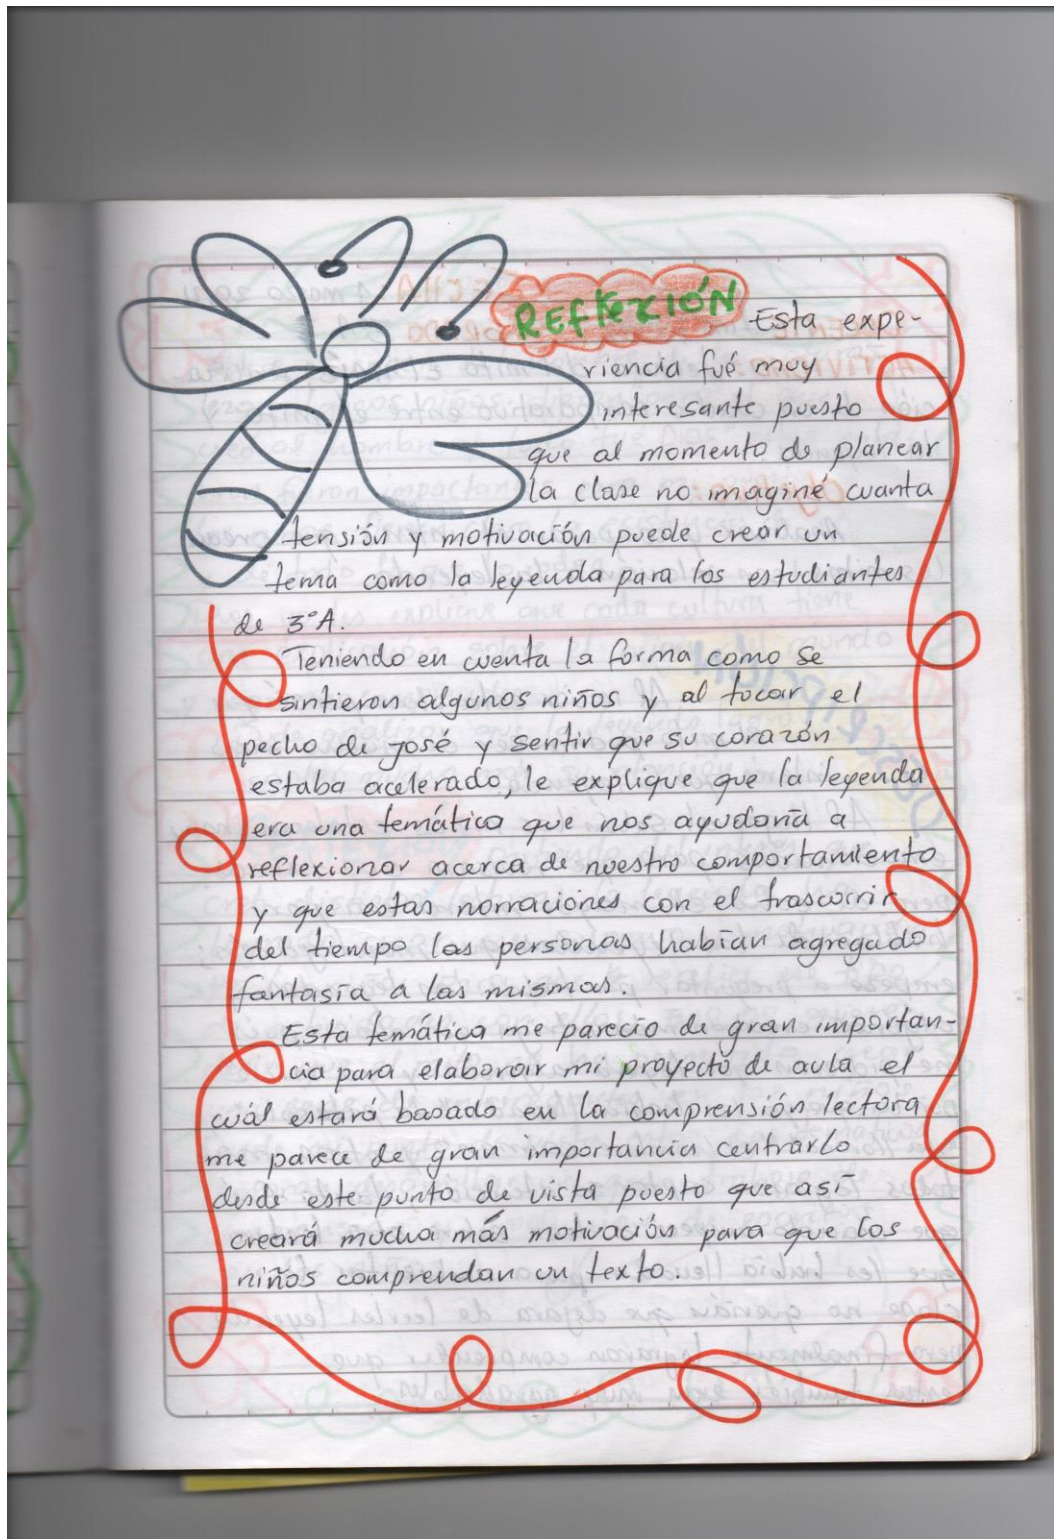 REFLEXIÓN Esta expe-
riencia fué muy
interesante puesto
que al momento de planear
la clase no imaginé cuanta
tensión y motivación puede crear un
tema como la leyenda para los estudiantes
de 3°A.
Teniendo en cuenta la forma como se
sintieron algunos niños y al tocar el
pecho de José y sentir que su corazón
estaba acelerado, le explique que la leyenda
era una temática que nos ayudaría a
reflexionar acerca de nuestro comportamiento
y que estas narraciones con el trascurrir
del tiempo las personas habían agregado
fantasía a las mismas.
Esta temática me parecio de gran importan-
cia para elaborar mi proyecto de aula el
cuál estará basado en la comprensión lectora
me parece de gran importancia centrarlo
desde este punto de vista puesto que así
creará mucha más motivación para que los
niños comprendan un texto.